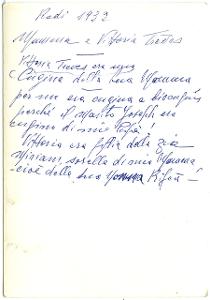 Rodi 1932
Mamma e Vittoria Treves
Vittoria Treves era una
Cugina della tua Nonna
per me era cugina e biscugina
perché il marito Joseph era
cugino di mio Papà!
Vittoria era figlia della zia
Miriam, sorella di mia Mamma
cioè della tua Nonna